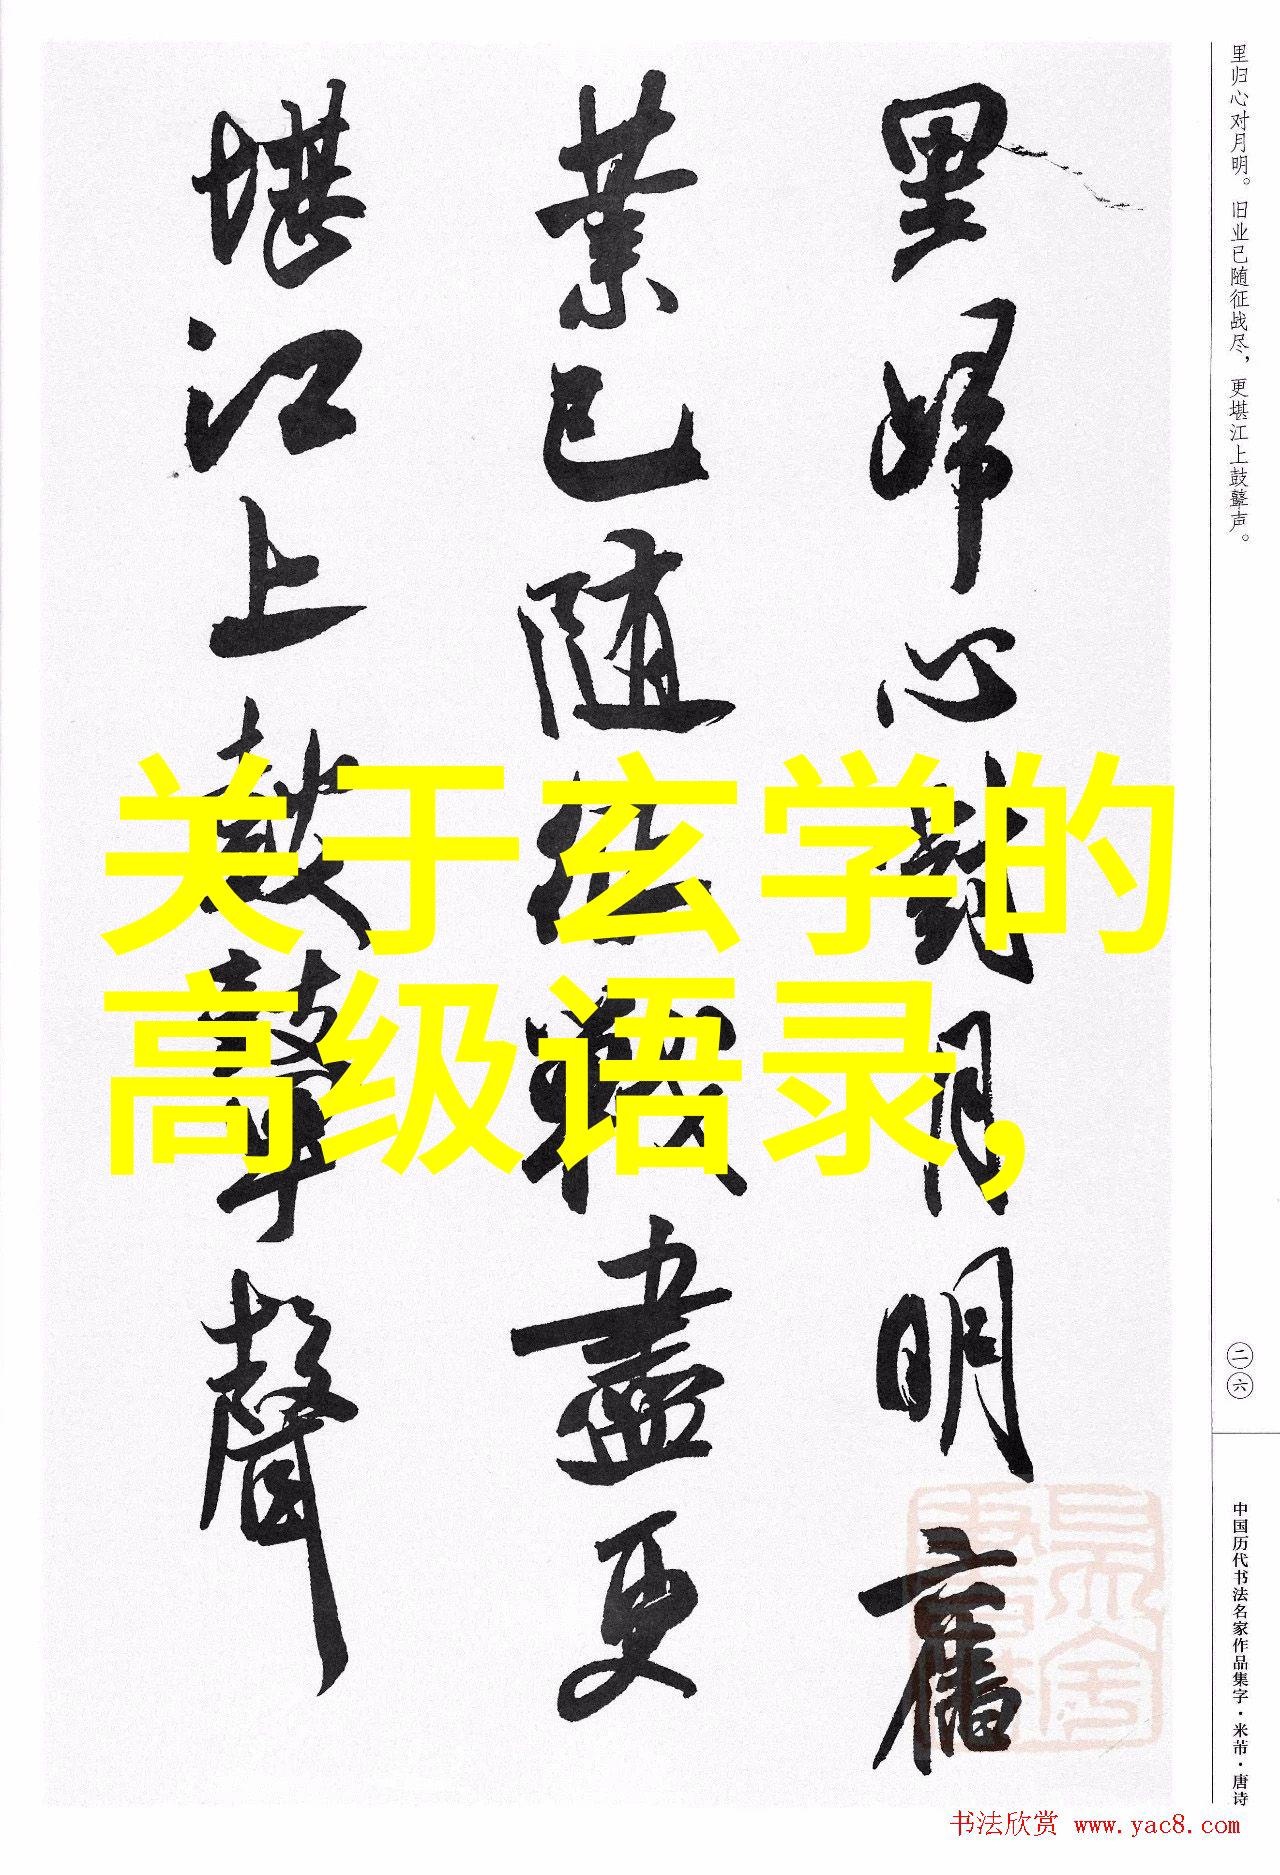 里歸心對月明舊
業已随征戰盡更
堪江上鼓鼙聲
关于玄学的
高级语录，
里归心对月明。旧业已随征战尽，更堪江上鼓鼙声。
二六
中国历代书法名家作品集字·米芾·唐诗
书法欣赏 www.yac8.com